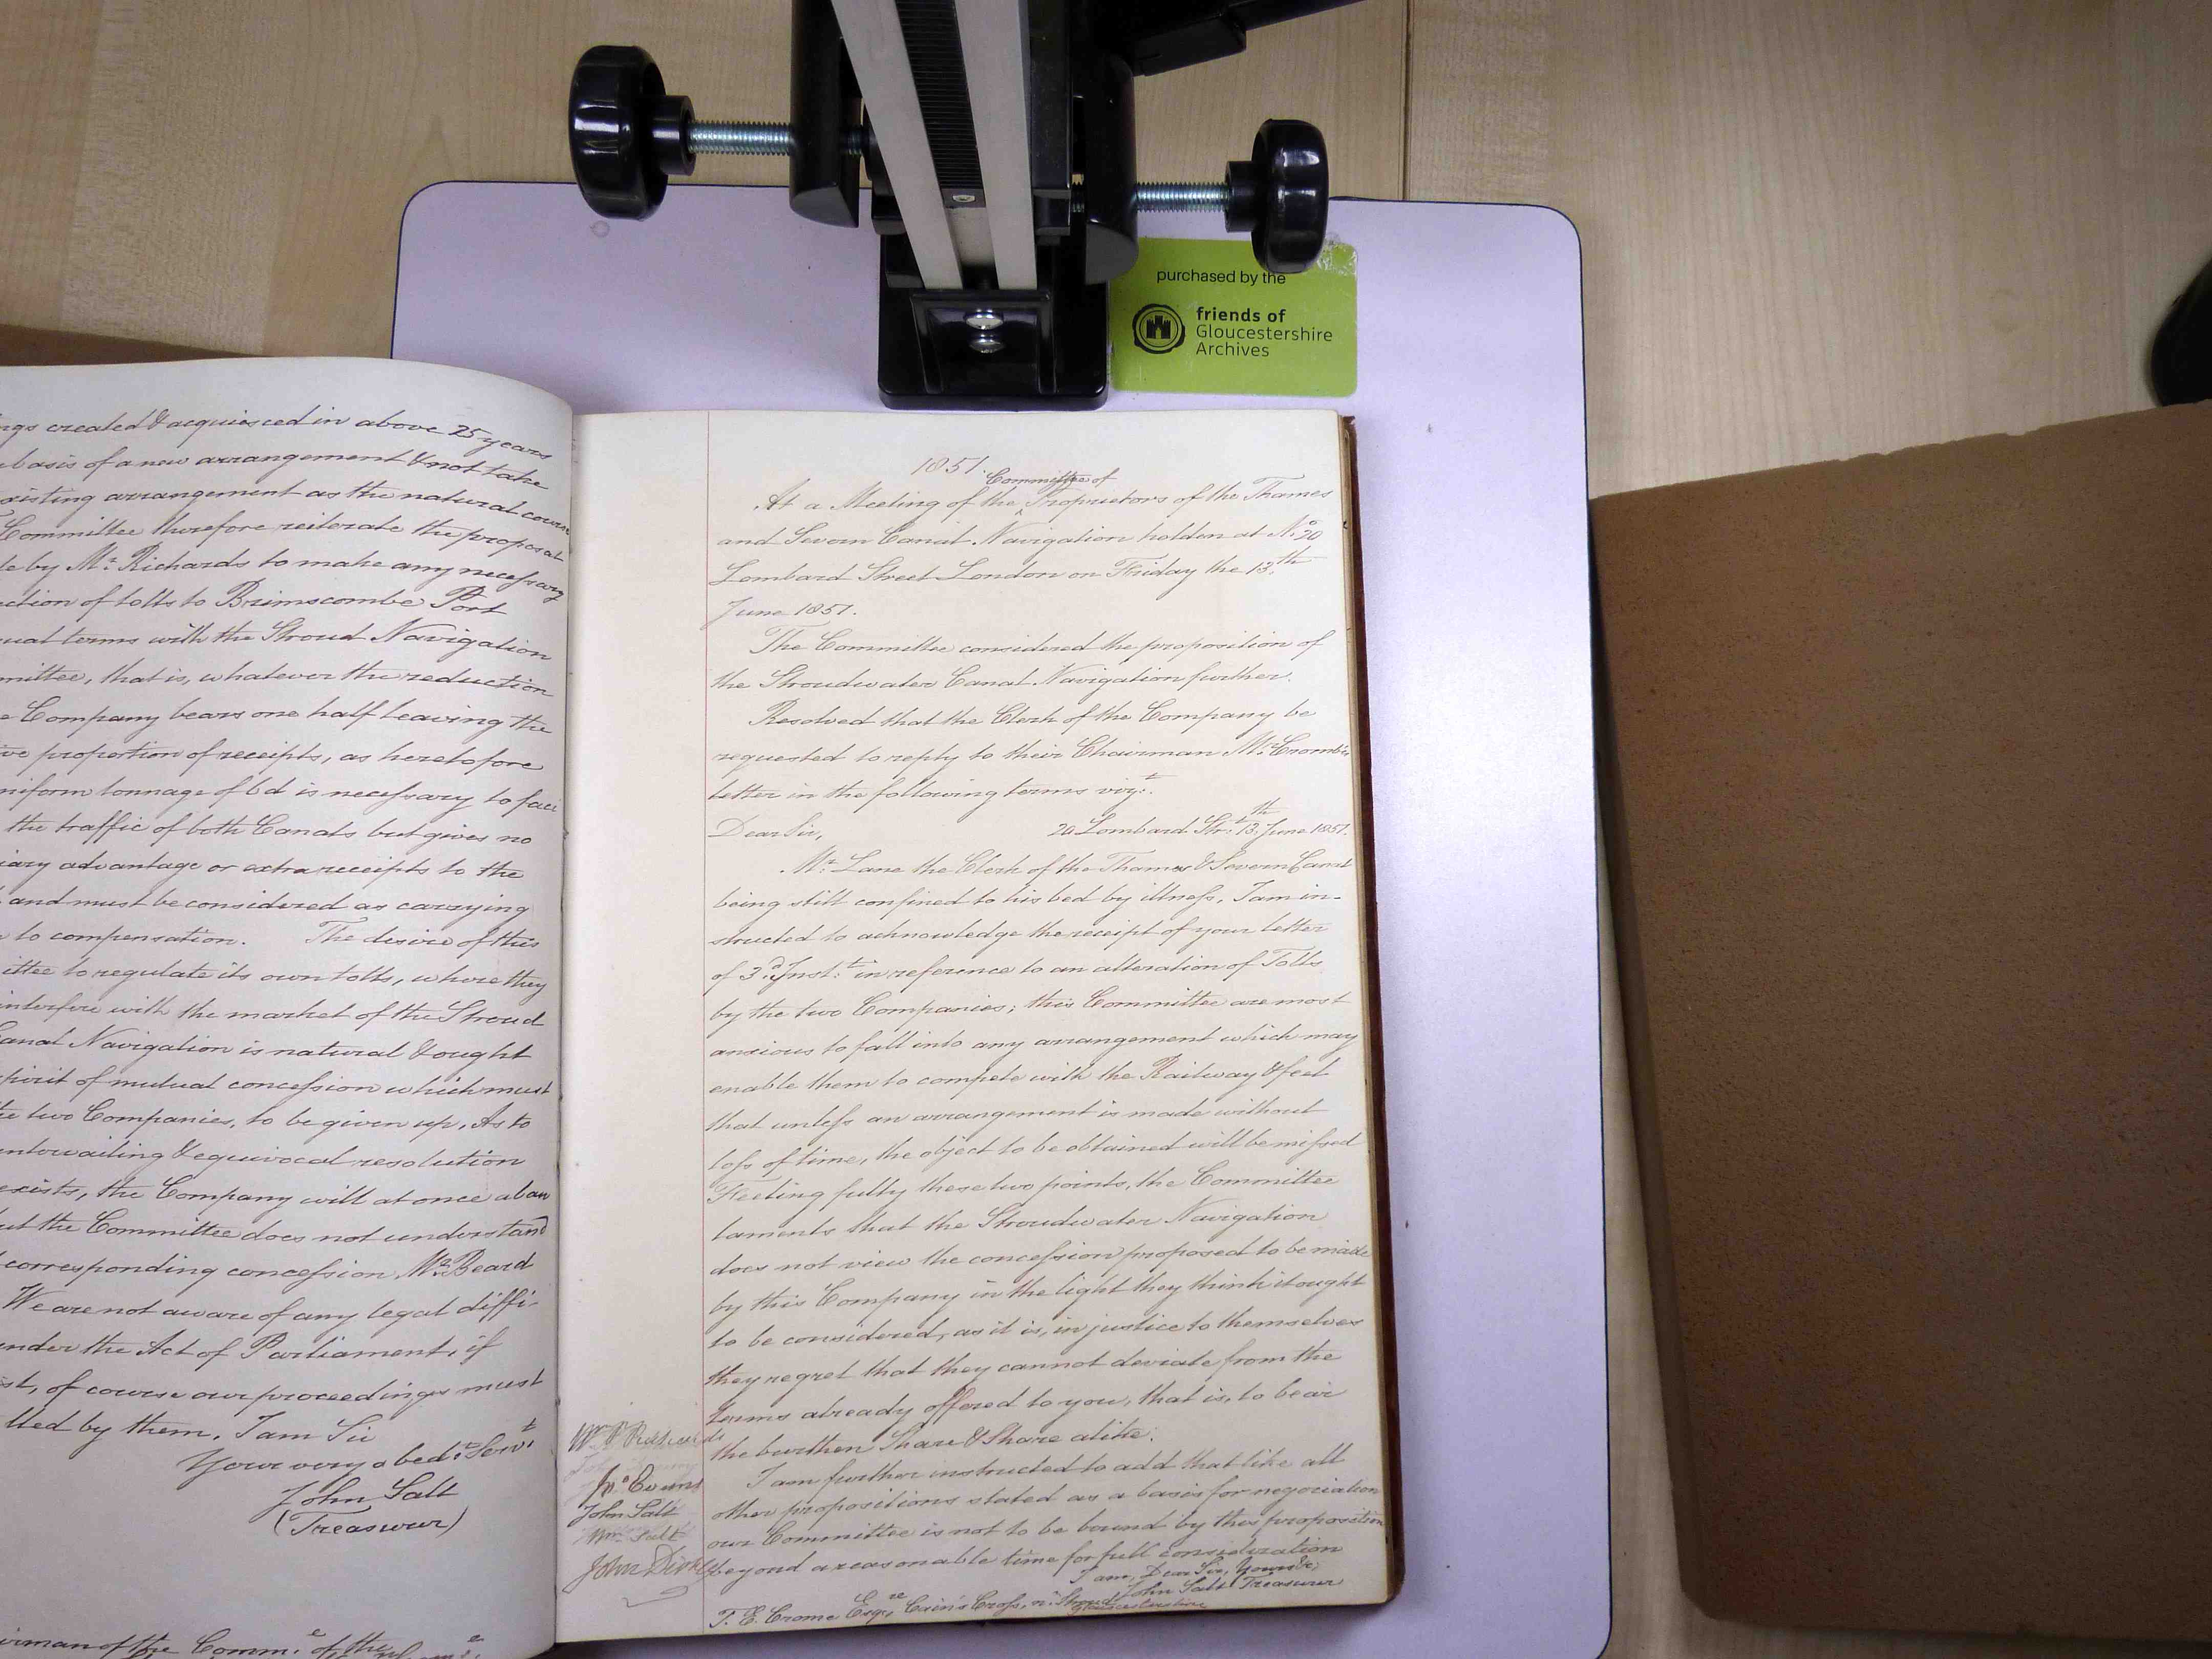 purchased by the
friends of
Gloucestershire
Archives
created & acquiesced in above 25 years
basis of a new arrangement & not take
existing arrangement as the natural
Committee therefore reiterate the proposal
by Mr. Richards to make any necessary
of tolls to Brimscombe Port
terms with the Stroud Navigation
that is, whatever the reduction
Company bears one half leaving the
proportion of receipts, as heretofore
tonnage of 6d is necessary to faci
the traffic of both Canals but gives no
advantage or extra receipts to the
and must be considered as carrying
to compensation. The desire of this
to regulate its own tolls, where they
interfere with the market of the Stroud
Canal Navigation is natural & ought
spirit of mutual concession which must
two Companies, to be given up, As to
& equivocal resolution
exists, the Company will at once aban
the Committee does not understand
corresponding concession Mr. Beard
We are not aware of any legal diffi-
under the Act of Parliament, if
of course our proceedings must
by them, I am Sir
Your very obedt. Servt
John Salt
(Treasurer)
of the Comme. of the
1851.
Committee of
At a Meeting of the Proprietors of the Thames
and Severn Canal Navigation holden at No. 20
Lombard Street London on Friday the 13th
June 1851.
The Committee considered the proposition of
the Stroudwater Canal Navigation further.
Resolved that the Clerk of the Company be
requested to reply to their Chairman Mr.
letter in the following terms vizt.
Dear Sir, 20 Lombard Strt. 13th June 1851.
Mr. Lane the Clerk of the Thames & Severn Canal
being still confined to his bed by illness, I am in-
structed to acknowledge the receipt of your letter
of 3d. Inst. in reference to an alteration of Tolls
by the two Companies; this Committee are most
anxious to fall into any arrangement which may
enable them to compete with the Railway & feel
that unless an arrangement is made without
loss of time, the object to be obtained will be missed
Feeling fully these two points, the Committee
laments that the Stroudwater Navigation
does not view the concession proposed to be made
by this Company in the light they think it ought
to be considered, as it is, in justice to themselves
they regret that they cannot deviate from the
terms already offered to you, that is, to bear
the burthen Share & Share alike.
I am further instructed to add that like all
other propositions stated as a basis for negociation
our Committee is not to be bound by this proposition
beyond a reasonable time for full consideration
I am, Dear Sir, Yours &c,
John Salt Treasurer
T. E. Crome Esqre, Cain's Cross, nr. Stroud
Gloucestershire
Wm. P Richards
Jno. Evans
John Salt
Wm. Salt
John